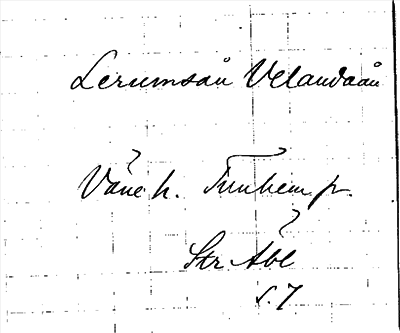 Lerumsån Velandaån
Väne h. Tunhem sn.
Skr Åbl
s. 7